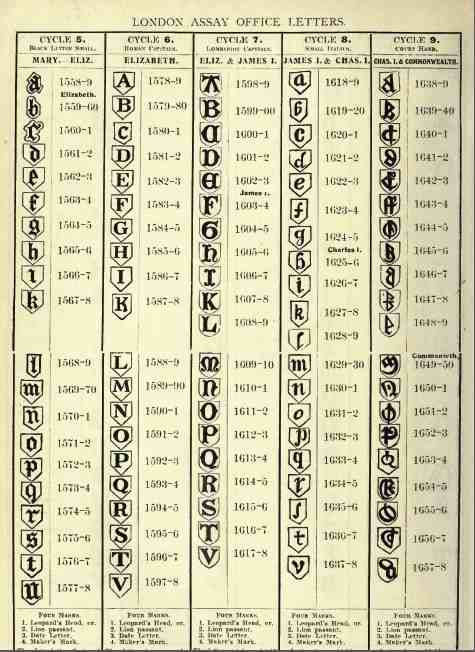 LONDON ASSAY OFFICE LETTERS.
CYCLE 5. CYCLE 6. CYCLE 7. CYCLE 8. CYCLE 9.
BLACK LETTER SMALL. ROMAN CAPITALS. LOMBARDIC CAPITALS. SMALL ITALICS. COURT HAND.
MARY.—ELIZ. ELIZABETH. ELIZ. & JAMES I. JAMES I. & CHAS. I. CHAS. I. & COMMONWEALTH.
a 1558-9 A 1578-9 A 1598-9 a 1618-9 1638-9
Elizabeth.
b 1559-60 B 1579-80 B 1599-00 b 1619-20 1639-40
c 1560-1 C 1580-1 C 1600-1 c 1620-1 1640-1
d 1561-2 D 1581-2 D 1601-2 d 1621-2 1641-2
e 1562-3 E 1582-3 E 1602-3 e 1622-3 1642-3
James I.
f 1563-4 F 1583-4 F 1603-4 f 1623-4 1643-4
g 1564-5 G 1584-5 G 1604-5 g 1624-5 1644-5
Charles I.
h 1565-6 H 1585-6 h 1605-6 h 1625-6 1645-6
i 1566-7 I 1586-7 I 1606-7 i 1626-7 1646-7
k 1567-8 K 1587-8 K 1607-8 k 1627-8 1647-8
L 1608-9 l 1628-9 1648-9
Commonwlth.
l 1568-9 L 1588-9 M 1609-10 m 1629-30 1649-50
m 1569-70 M 1589-90 n 1610-1 n 1630-1 1650-1
n 1570-1 N 1590-1 O 1611-2 o 1631-2 1651-2
o 1571-2 O 1591-2 P 1612-3 p 1632-3 1652-3
p 1572-3 P 1592-3 Q 1613-4 q 1633-4 1653-4
q 1573-4 Q 1593-4 R 1614-5 r 1634-5 1654-5
r 1574-5 R 1594-5 S 1615-6 s 1635-6 1655-6
s 1575-6 S 1595-6 T 1616-7 t 1636-7 1656-7
t 1576-7 T 1596-7 V 1617-8 v 1637-8 1657-8
u 1577-8 V 1597-8
FOUR MARKS. FOUR MARKS. FOUR MARKS. FOUR MARKS. FOUR MARKS.
1. Leopard's Head, cr. 1. Leopard's Head, cr. 1. Leopard's Head, cr. 1. Leopard's Head, cr. 1. Leopard's Head, cr.
2. Lion passant. 2. Lion passant. 2. Lion passant. 2. Lion passant. 2. Lion passant.
3. Date Letter. 3. Date Letter. 3. Date Letter. 3. Date Letter. 3. Date Letter.
4. Maker's Mark. 4. Maker's Mark. 4. Maker's Mark. 4. Maker's Mark. 4. Maker's Mark.